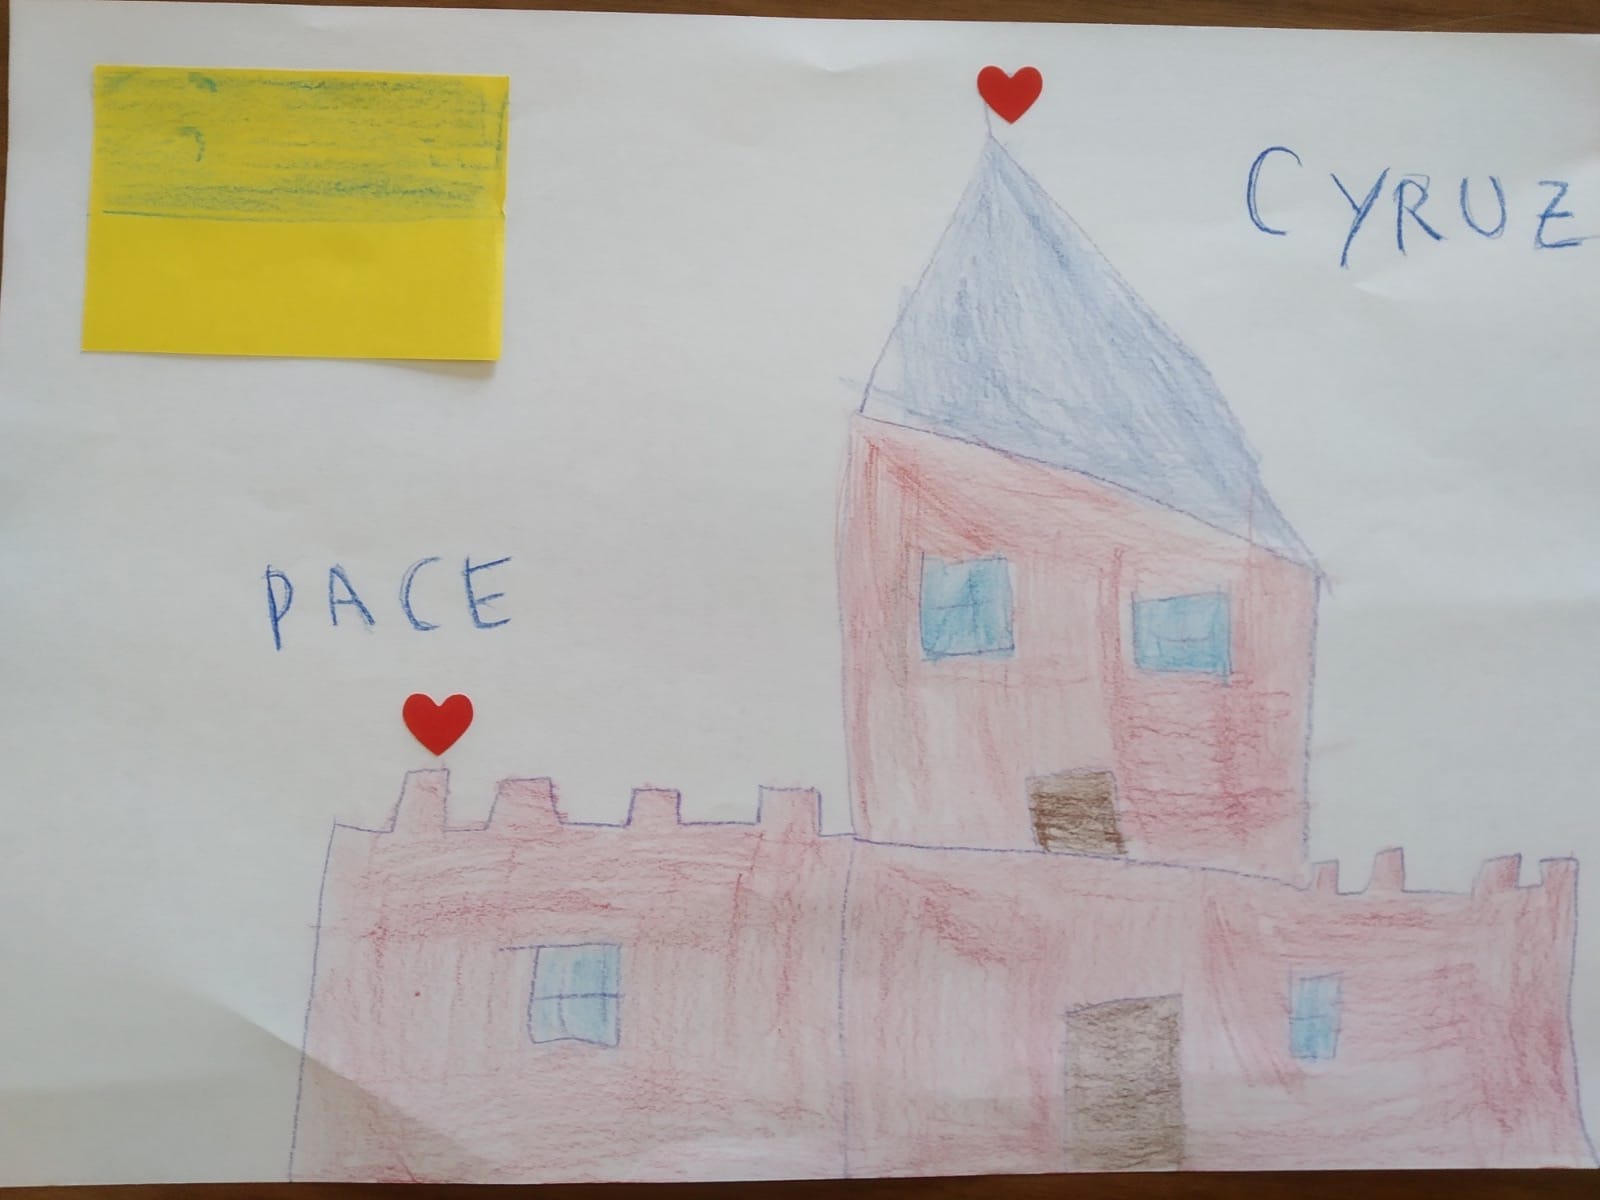 CYRUZ
PACE